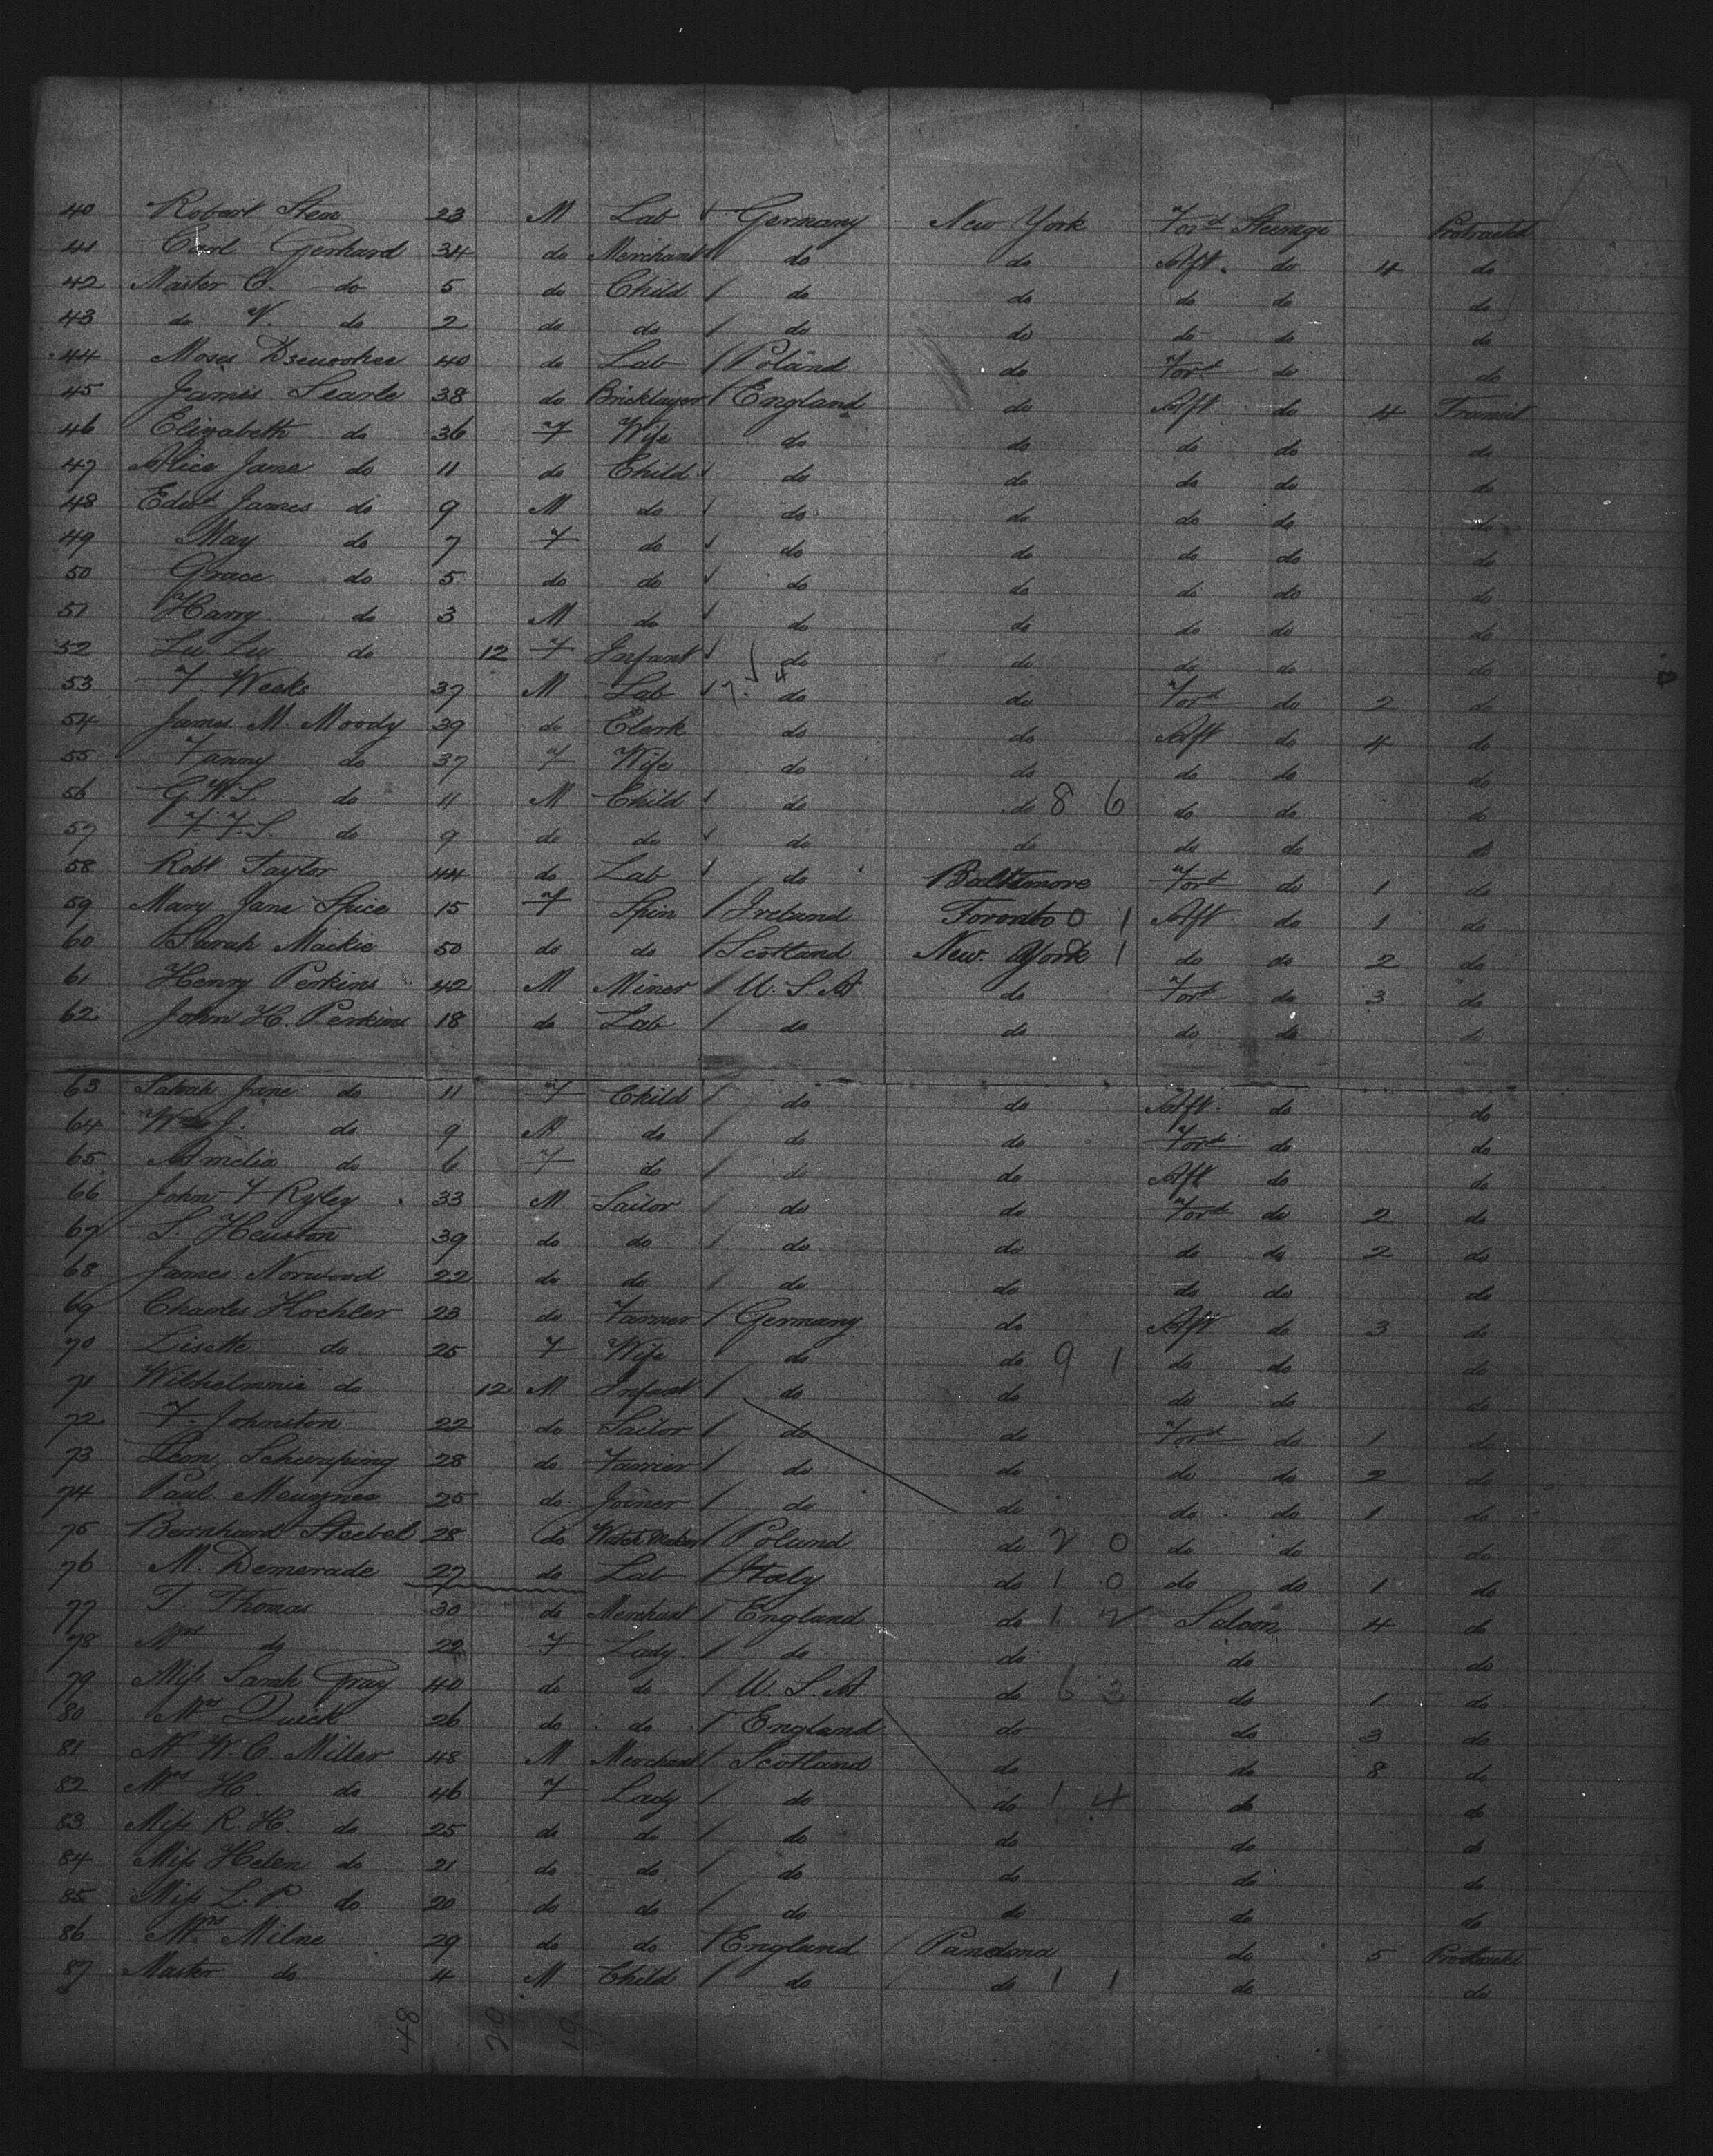 40 Robert Sten 23 M Lab Germany New York For^d Steerage Protracted
41 Carl Gerhard 34 do Merchant do do Aft. do 4 do
42 Master C. do 5 do Child do do do do do
43 do V. do 2 do do do do do do do
44 Moses 40 do Lab Poland do For^d do do
45 James Searle 38 do Bricklayer England do Aft do 4 Transit
46 Elizabeth do 36 F Wife do do do do do
47 Alice Jane do 11 do Child do do do do do
48 Edw^d James do 9 M do do do do do do
49 May do 7 F do do do do do do
50 Grace do 5 do do do do do do do
51 Harry do 3 M do do do do do do
52 Lu Lu do 12 F Infant do do do do do
53 F. Weeks 37 M Lab do do For^d do 2 do
54 James M. Moody 39 do Clerk do do Aft do 4 do
55 Fanny do 37 F Wife do do do do do
56 G.W.S. do 11 M Child do do 8 6 do do do
57 F.F.S. do 9 do do do do do do do
58 Robt Taylor 44 do Lab do Baltimore For^d do 1 do
59 Mary Jane Spice 15 F Spin Ireland Toronto 0 1 Aft do 1 do
60 Sarah Mackie 50 do do Scotland New York 1 do do 2 do
61 Henry Perkins 42 M Miner U.S.A do For^d do 3 do
62 John H. Perkins 18 do Lab do do do do do
63 Sarah Jane do 11 F Child do do Aft. do do
64 Wm J. do 9 M do do do For^d do do
65 Amelia do 6 F do do do Aft do do
66 John F Ryley 33 M Sailor do do For^d do 2 do
67 S. Heuston 39 do do do do do do 2 do
68 James Norwood 22 do do do do do do do
69 Charles Kochler 23 do Farmer Germany do Aft do 3 do
70 Lisette do 25 F Wife do do 9 1 do do do
71 Wilhelmnie do 12 M Infant do do do do do
72 F. Johnston 22 do Sailor do do For^d do 1 do
73 Leon Schwaping 28 do Farrier do do do do 2 do
74 Paul 25 do Joiner do do do do 1 do
75 Bernhard Stiebel 28 do Watch Maker Poland do 2 0 do do do
76 M. Demerade 27 do Lab Italy do 1 0 do do 1 do
77 T. Thomas 30 do Merchant England do 1 2 Saloon 4 do
78 Mrs do 22 F Lady do do do do
79 Miss Sarah Gray 40 do do U.S.A do 6 3 do 1 do
80 Mrs Quick 26 do do England do do 3 do
81 Mr W.C. Miller 48 M Merchant Scotland do do 8 do
82 Mrs H. do 46 F Lady do do 1 4 do do
83 Miss R.H. do 25 do do do do do do
84 Miss Helen do 21 do do do do do do
85 Miss L.P do 20 do do do do do do
86 Mrs Milne 29 do do England Panama do 5 Protracted
87 Master do 4 M Child do do 1 1 do do
48 29 19